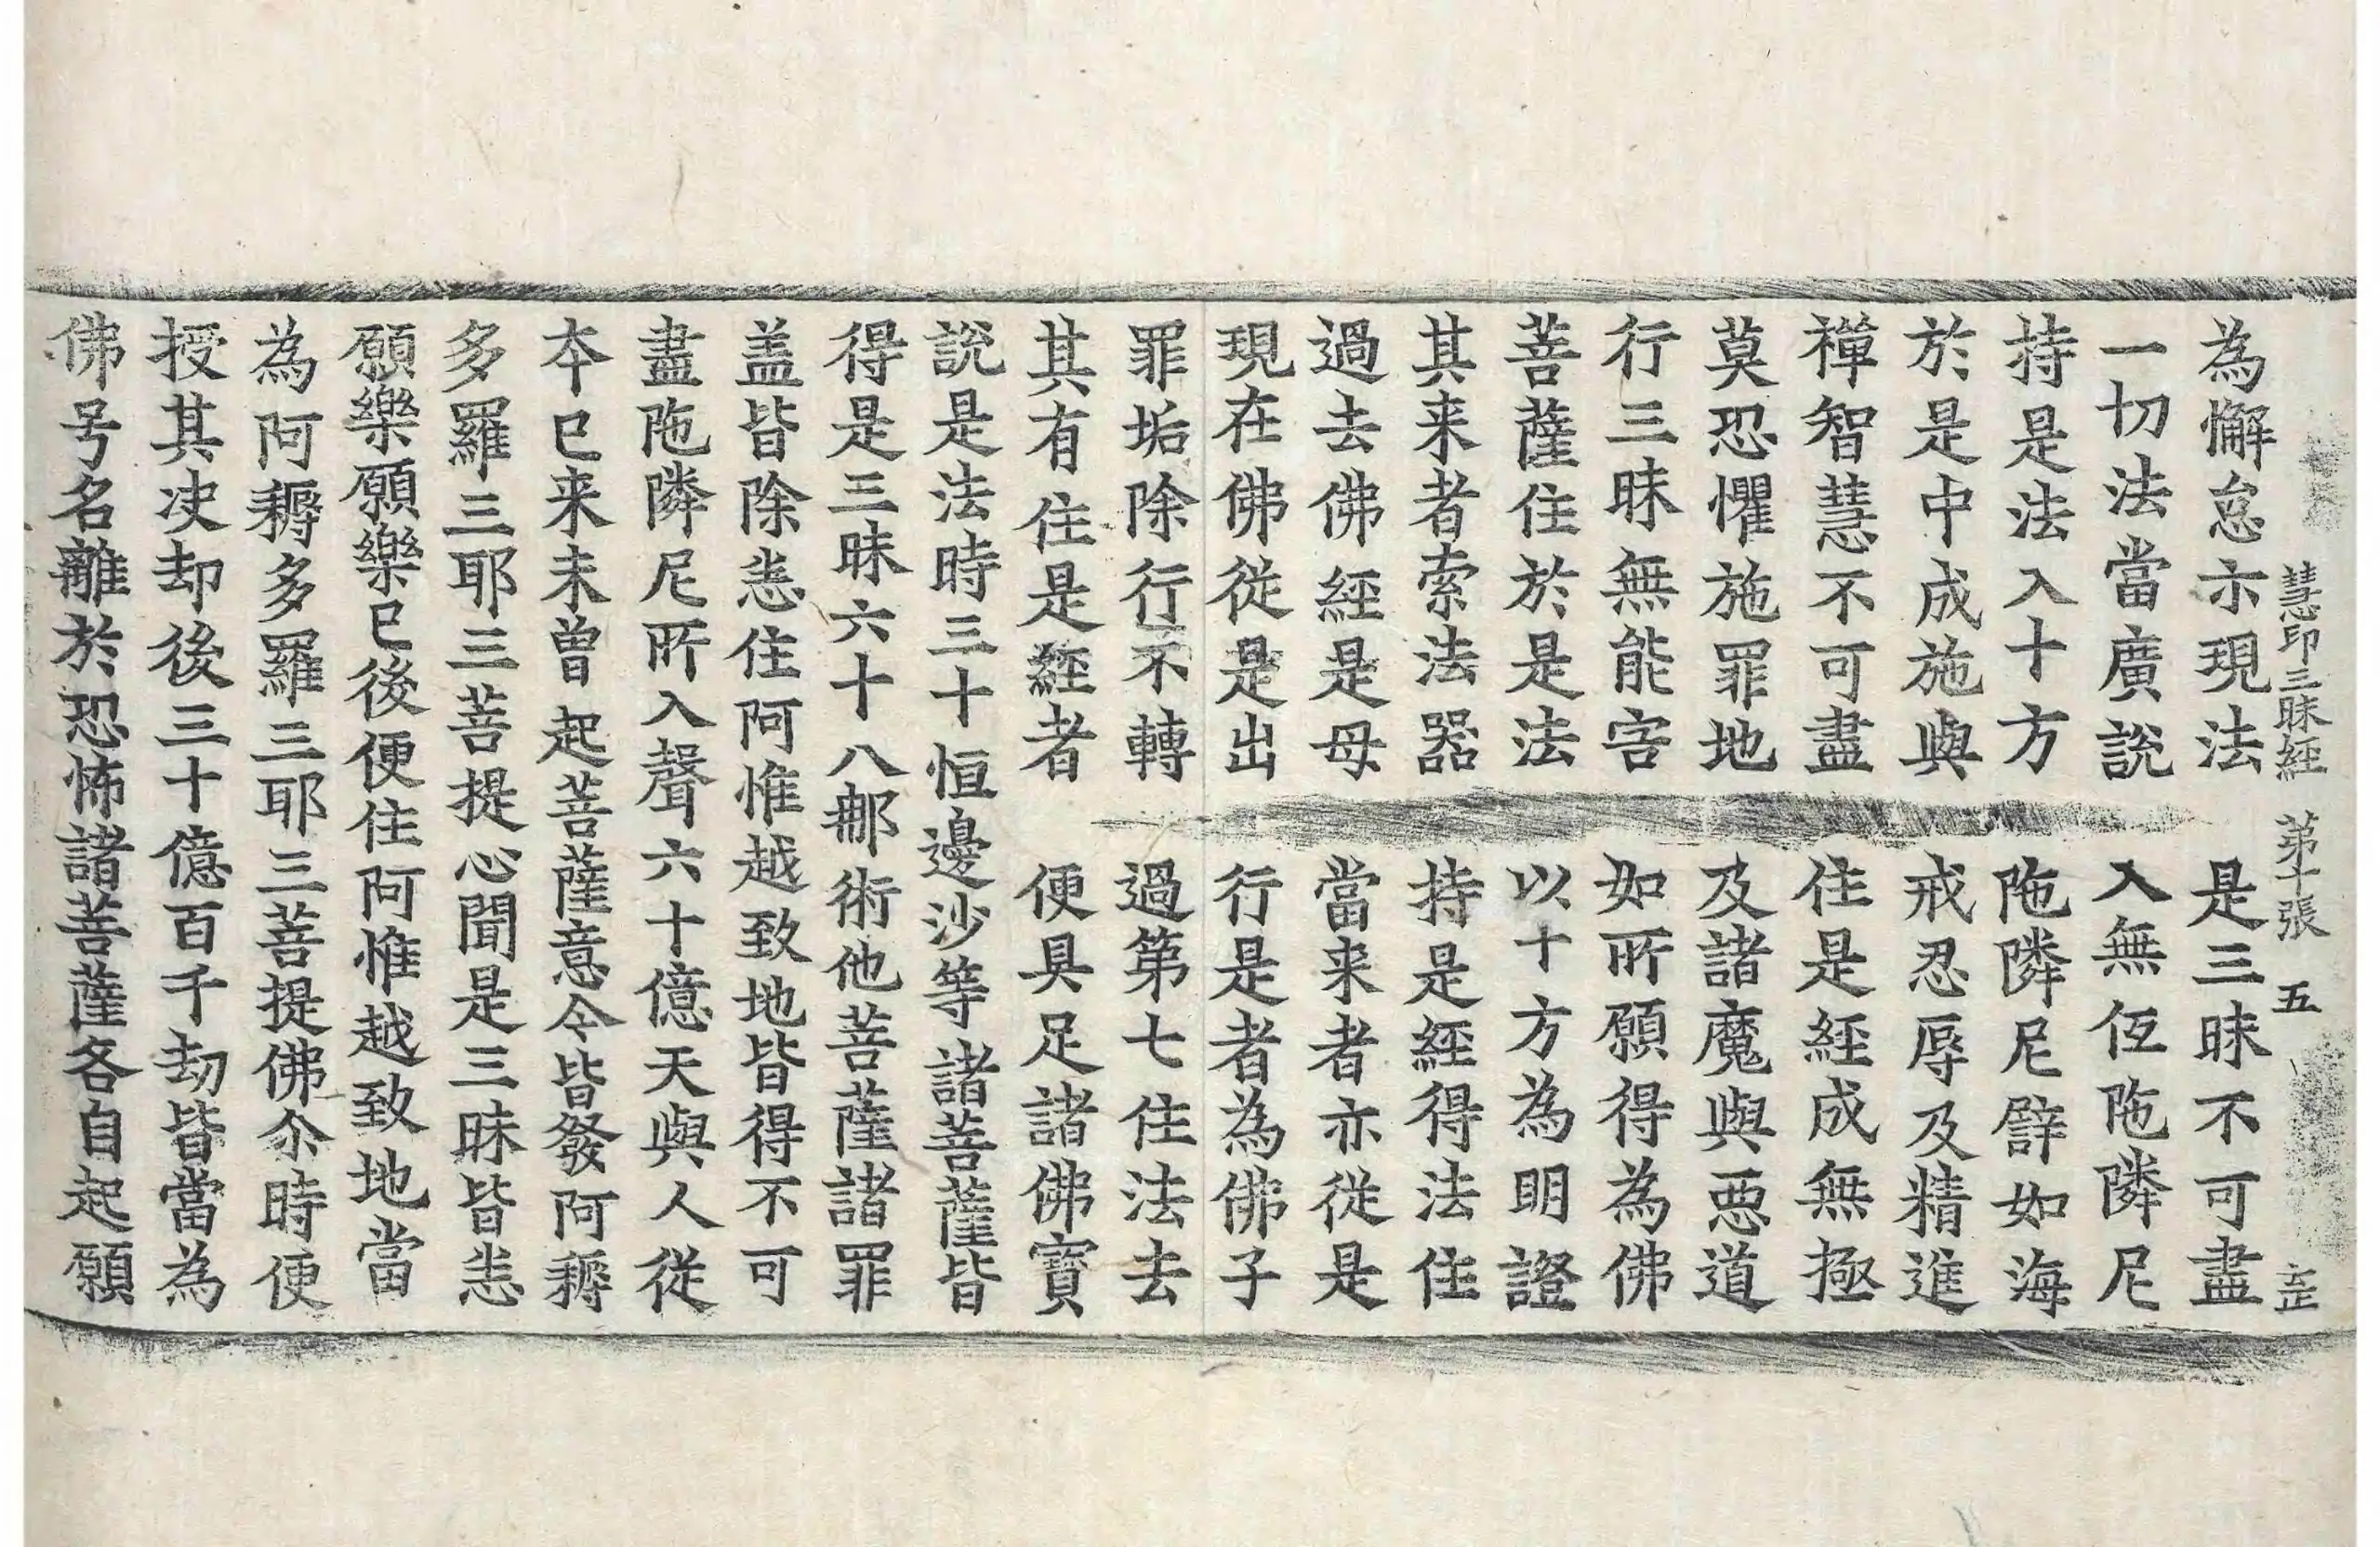 慧印三昧經　第十張　五　㱏
為懈怠示現法　是三昧不可盡
一切法當廣說　入無伍陁隣尼
持是法入十方　陁隣尼譬如海
於是中成施與　戒忍辱及精進
禪智慧不可盡　住是經成無極
莫恐懼施罪地　及諸魔與惡道
行三昧無能害　如所願得為佛
菩薩住於是法　以十方為明證
其来者索法器　持是經得法住
過去佛經是母　當来者亦從是
現在佛從是出　行是者為佛子
罪垢除行不轉　過第七住法去
其有住是經者　便具足諸佛寶
說是法時三十恒邊沙等諸菩薩皆
得是三昧六十八那術他菩薩諸罪
盖皆除悉住阿惟越致地皆得不可
盡陁隣尼所入聲六十億天與人從
本已来未曾起菩薩意令皆發阿耨
多羅三耶三菩提心聞是三昧皆悉
願樂願樂已後便住阿惟越致地當
為阿耨多羅三耶三菩提佛尒時便
授其决却後三十億百千劫皆當為
佛号名離於恐怖諸菩薩各自起願